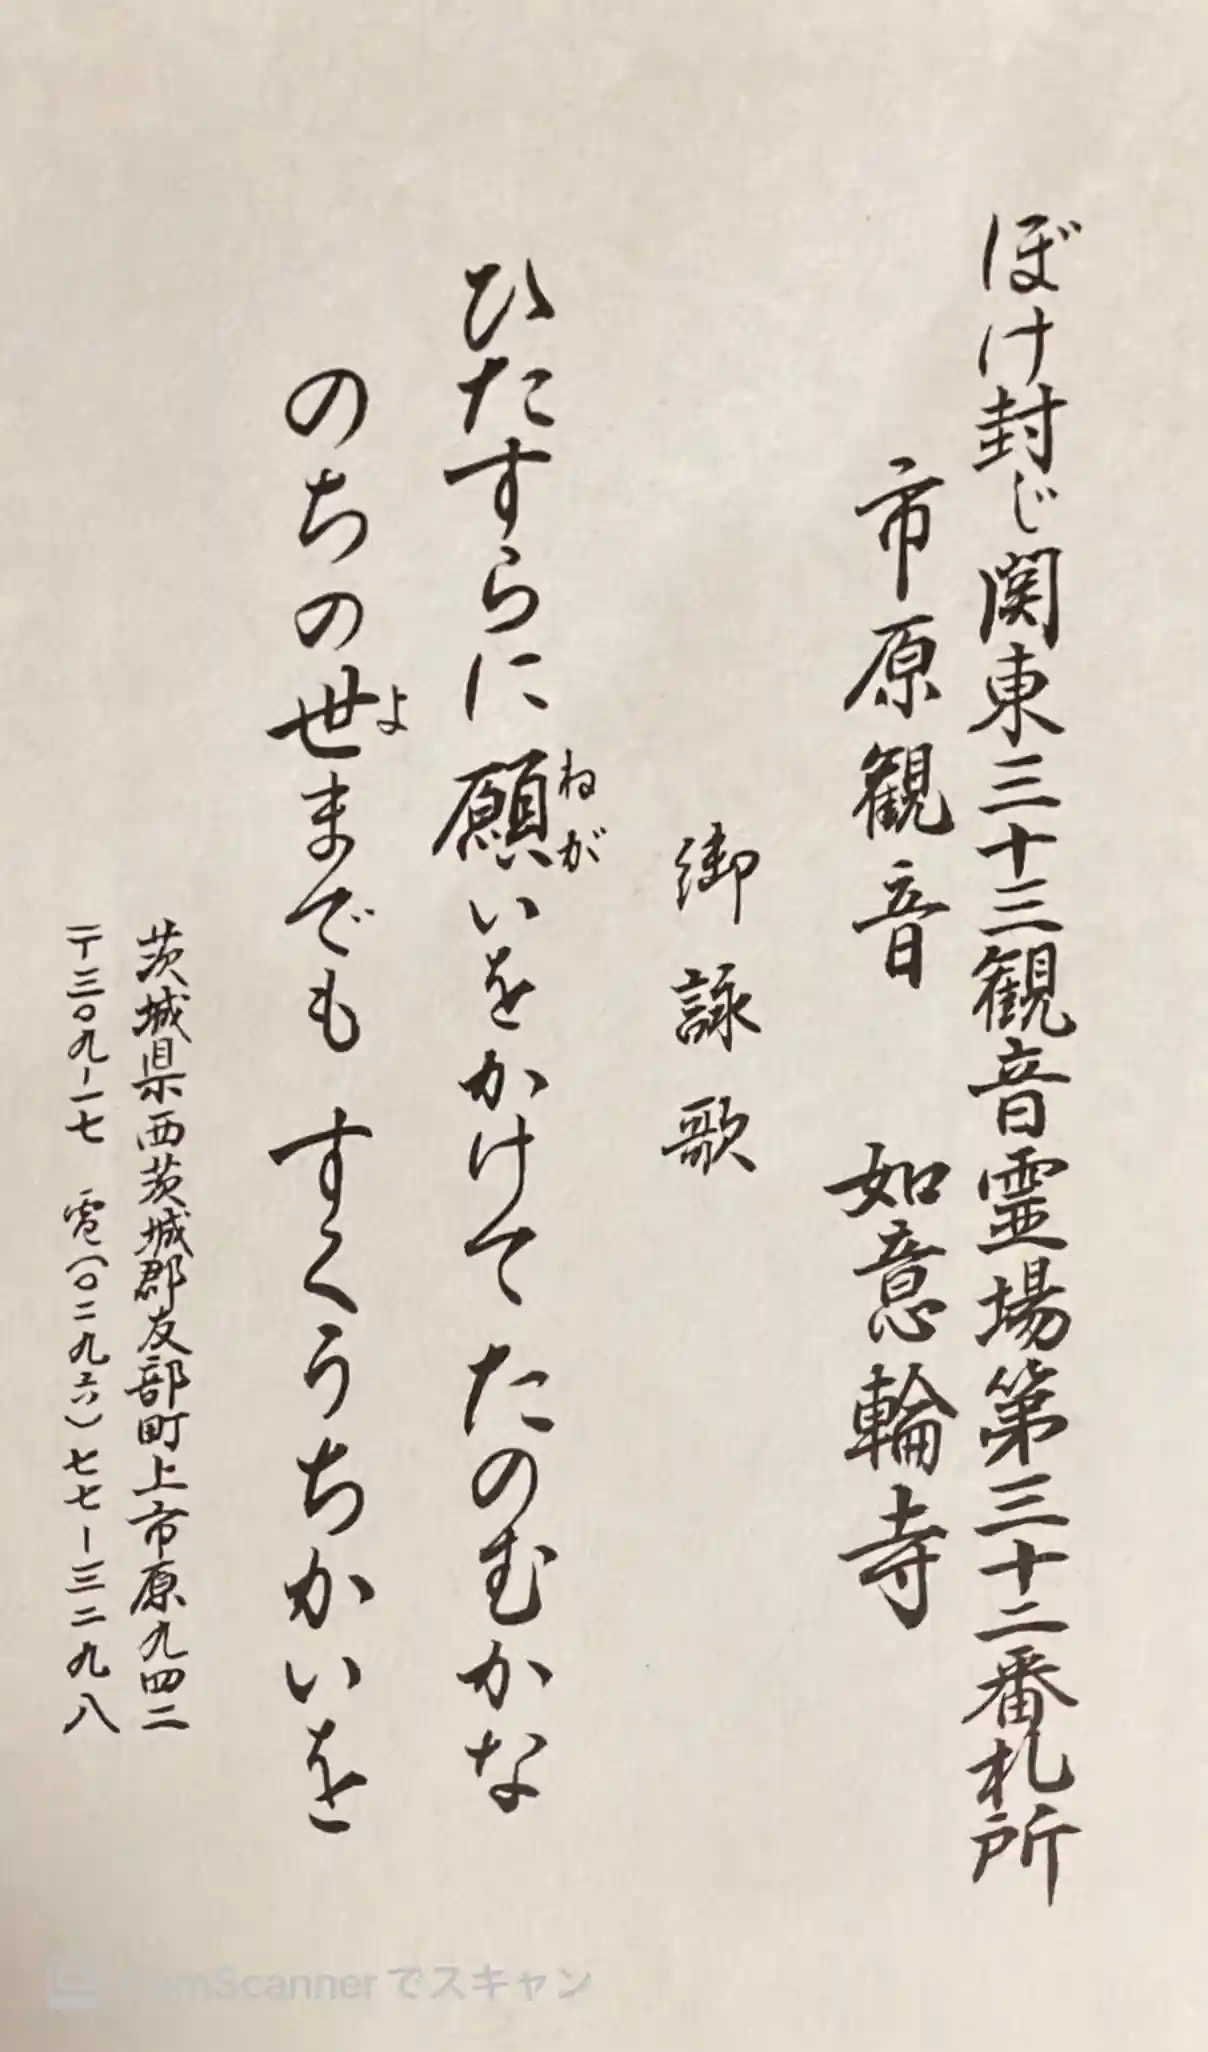 ぼけ封じ関東三十三観音霊場第三十二番札所
市原観音 如意輪寺
御詠歌
ひたすらに願いをかけて たのむかな
ねが
のちの世までも すくうちかいを
よ
茨城県西茨城郡友部町上市原九四二
〒三〇九-一七 電(〇二九六)七七-三二九八
CamScannerでスキャン